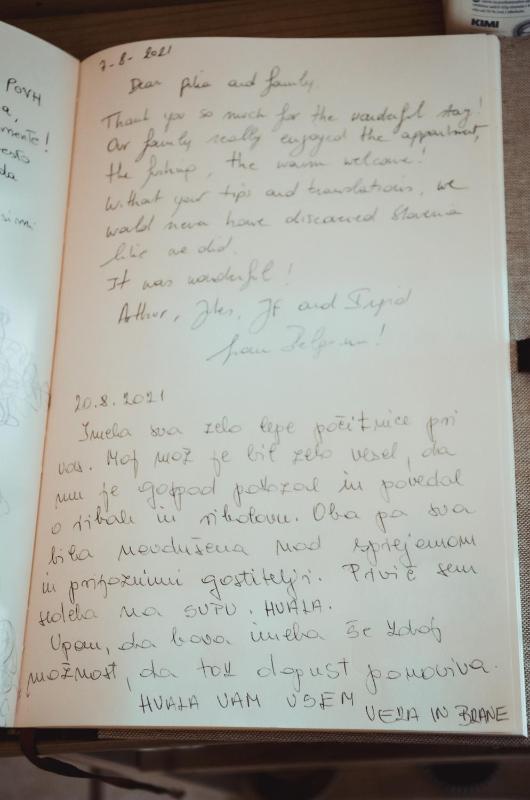 KIMI
POVH
a,
mente!
esto
da
7-8-2021
Dear and family,
Thank you so much for the wonderful stay!
Our family really enjoyed the appartment,
the fishing, the warm welcome!
Without your tips and translations, we
would never have discovered Slovenia
like we did.
It was wonderful!
Arthur, Jules, and
from Belgium!
20.8.2021
Imela sva zelo lepe počitnice pri
vas. Moj mož je bil zelo vesel, da
mu je gospod pokazal in povedal
o ribah in ribolovu. Oba pa sva
bila navdušena nad sprejemom
in prijaznimi gostitelji. Prvič sem
sedela na SUPU. HVALA.
Upam, da bova imela še kdaj
možnost, da tak dopust ponoviva.
HVALA VAM VSEM
VERA IN BRANE